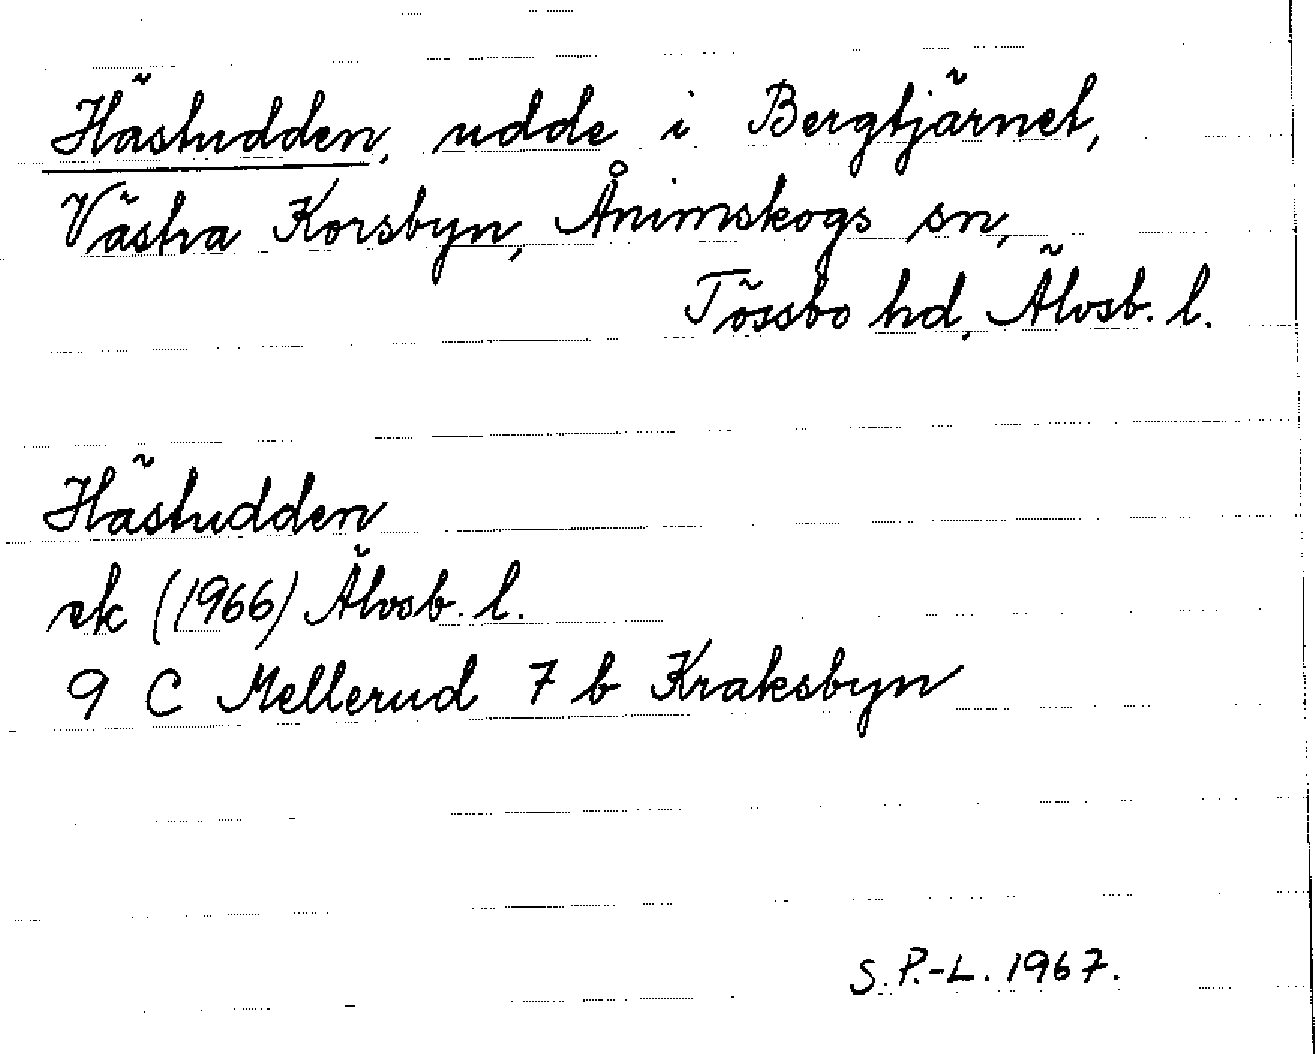 Hästudden, udde i Bergtjärnet,
Västra Korsbyn, Ånimskogs sn,
Tössbo hd, Älvsb. l.
Hästudden
ek (1966) Älvsb. l.
9 C Mellerud 7 b Kraksbyn
S.P.-L. 1967.